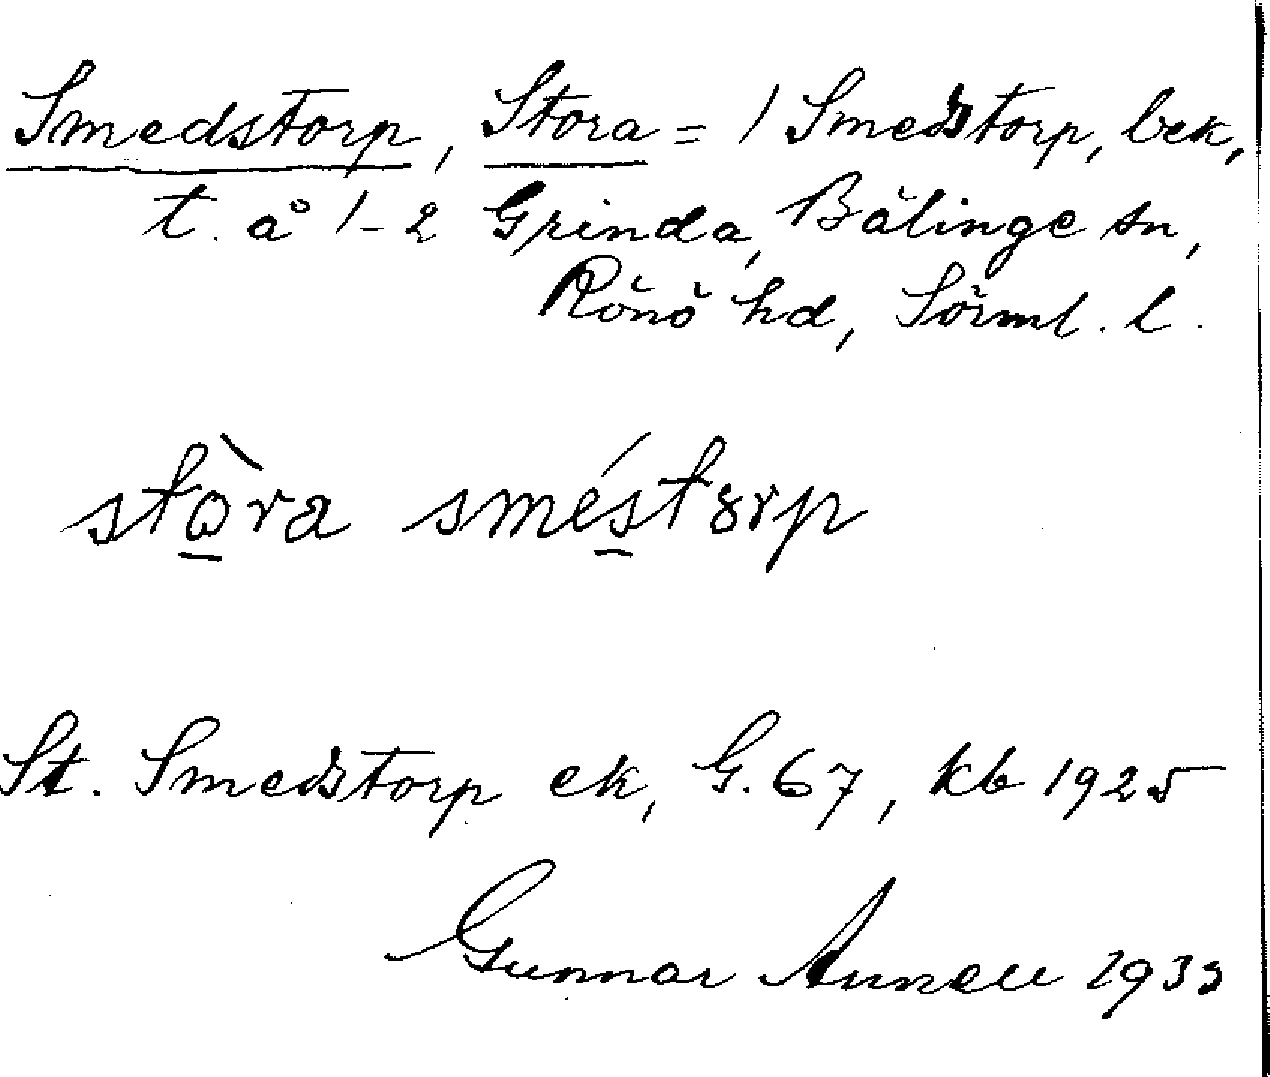 Smedstorp, Stora = 1 Smedstorp, bek,
t. å 1-2 Grinda, Bälinge sn,
Rönö hd, Sörml. l.
stòra sméstorp
St. Smedstorp ek, G. 67, kb 1925
Gunnar 1933